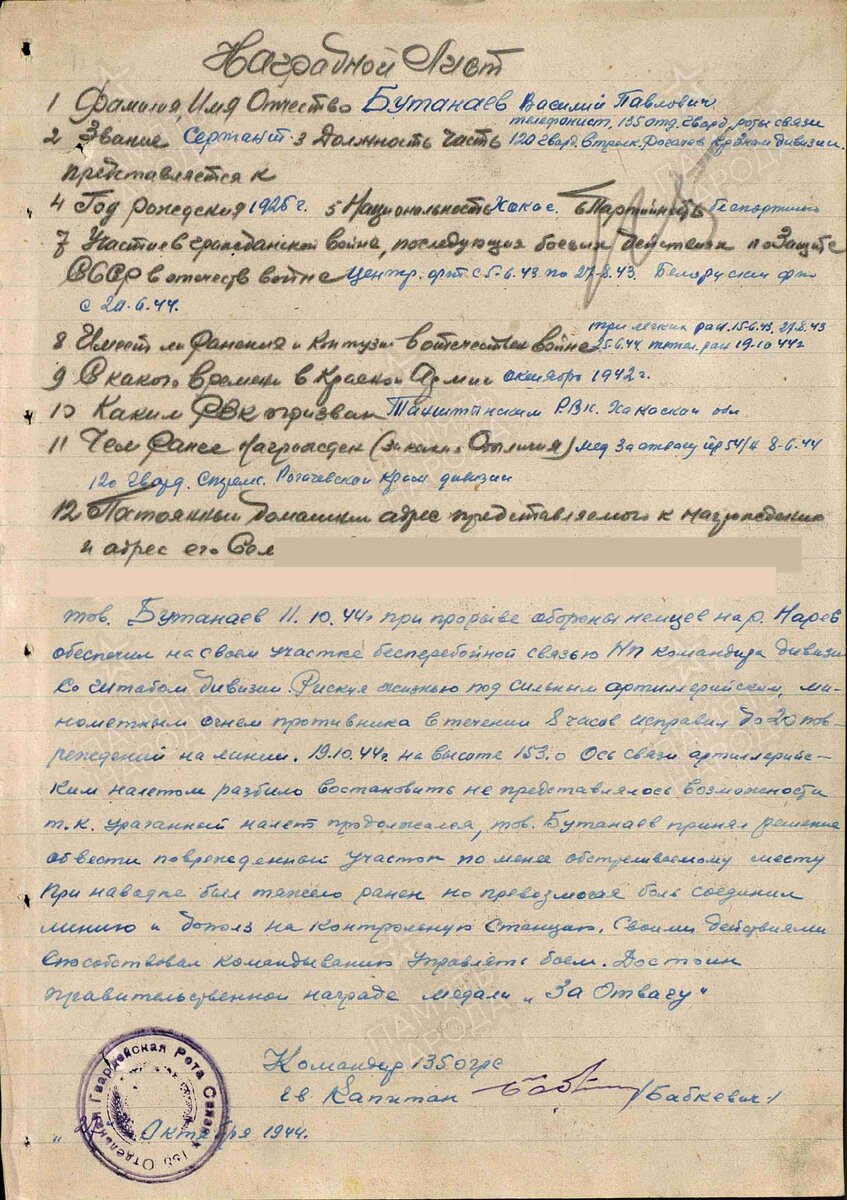 Наградной Лист
1 Фамилия, Имя Отчество Бутанаев Василий Павлович
телефонист, 135 отд. гвард. роты связи
2 Звание Сержант 3 Должность часть 120 гвард. стрелк. Рогачев Красн дивизии.
представляется к
4 Год рождения 1925 г. 5 Национальность Хакас. 6 Партийность беспартийн
7 Участие в гражданской война, последующия боевых действиях по защите
СССР в отечеств войне Центр. фрт. с 5-6.43 по 27-8.43. Белоруский фр
с 20.6.44.
три легких ран. 15-6.43, 27-8.43
8 Имеет ли ранения и контузи в отечествен войне 25.6.44. тяжел. ран 19-10 44 г
9 С какого времени в Красной Армии октябрь 1942 г.
10 Каким РВК призван Таштыпским РВК. Хакаской обл
11 Чем ранее награжден (за какие отличия) мед За отвагу пр 54/н 8-6.44
120 гвард. Стрелк. Рогачевской Красн дивизии
12 Постоянный домашний адрес представляемого к награждению
и адрес его Сем
тов. Бутанаев 11.10.44г при прорыве обороны немцев на р. Нарев
обеспечил на своем участке бесперебойной связью НП командира дивизи
со штабом дивизии. Рискуя жизнью под сильным артиллерийским, ми-
нометным огнем противника в течении 8 часов исправил до 20 пов-
реждений на линии. 19.10.44г. на высоте 153.0 Ось связи артиллерийс-
ким налетом разбило востановить не представлялось возможности
т.к. ураганный налет продолжался, тов. Бутанаев принял решение
обвести поврежденный участок по менее обстреливаемому месту
при наводке был тяжело ранен но превозмогая боль соединил
линию и дополз на контрольную станцию. Своими действиями
способствовал командыванию управлять боем. Достоин
правительственной награде медали "За Отвагу"
Командир 135 огрс
гв Капитан /Бабкевич/
"27" Октября 1944.
Отдельная Гвардейская Рота Связи